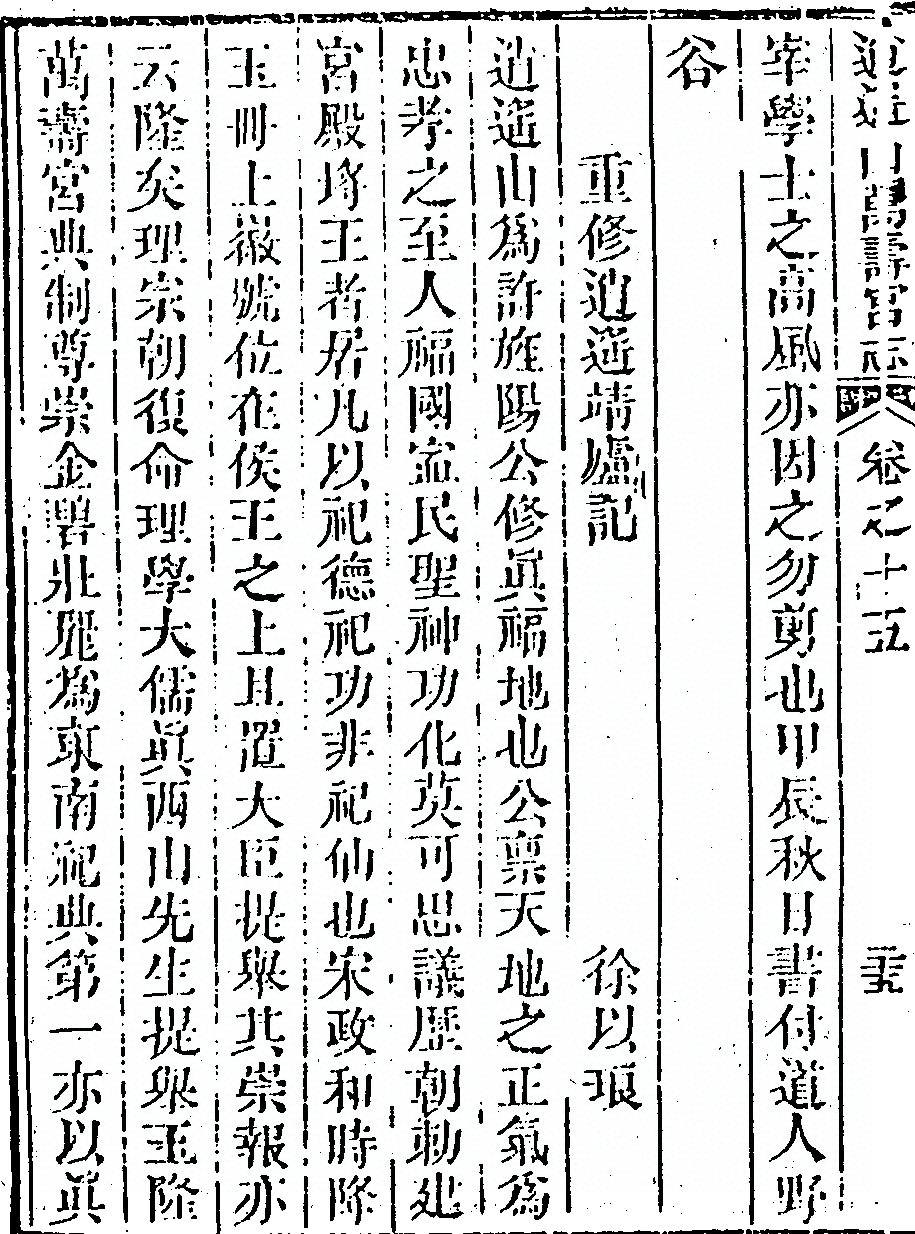 逍遙山萬壽宮志 卷之十五
宰學士之高風亦因之勿剪也甲辰秋日書付道人野
谷
重修逍遙靖廬記 徐以琅
逍遙山為許旌陽公修眞福地也公禀天地之正氣為
忠孝之至人福國寍民聖神功化莫可思議歷朝勅建
宮殿埓王者居凡以祀德祀功非祀仙也宋政和時降
玉冊上徽號位在侯王之上且置大臣提舉其崇報亦
云隆矣理宗朝復命理學大儒眞西山先生提舉玉隆
萬壽宮典制尊崇金碧壯麗為東南祀典第一亦以眞